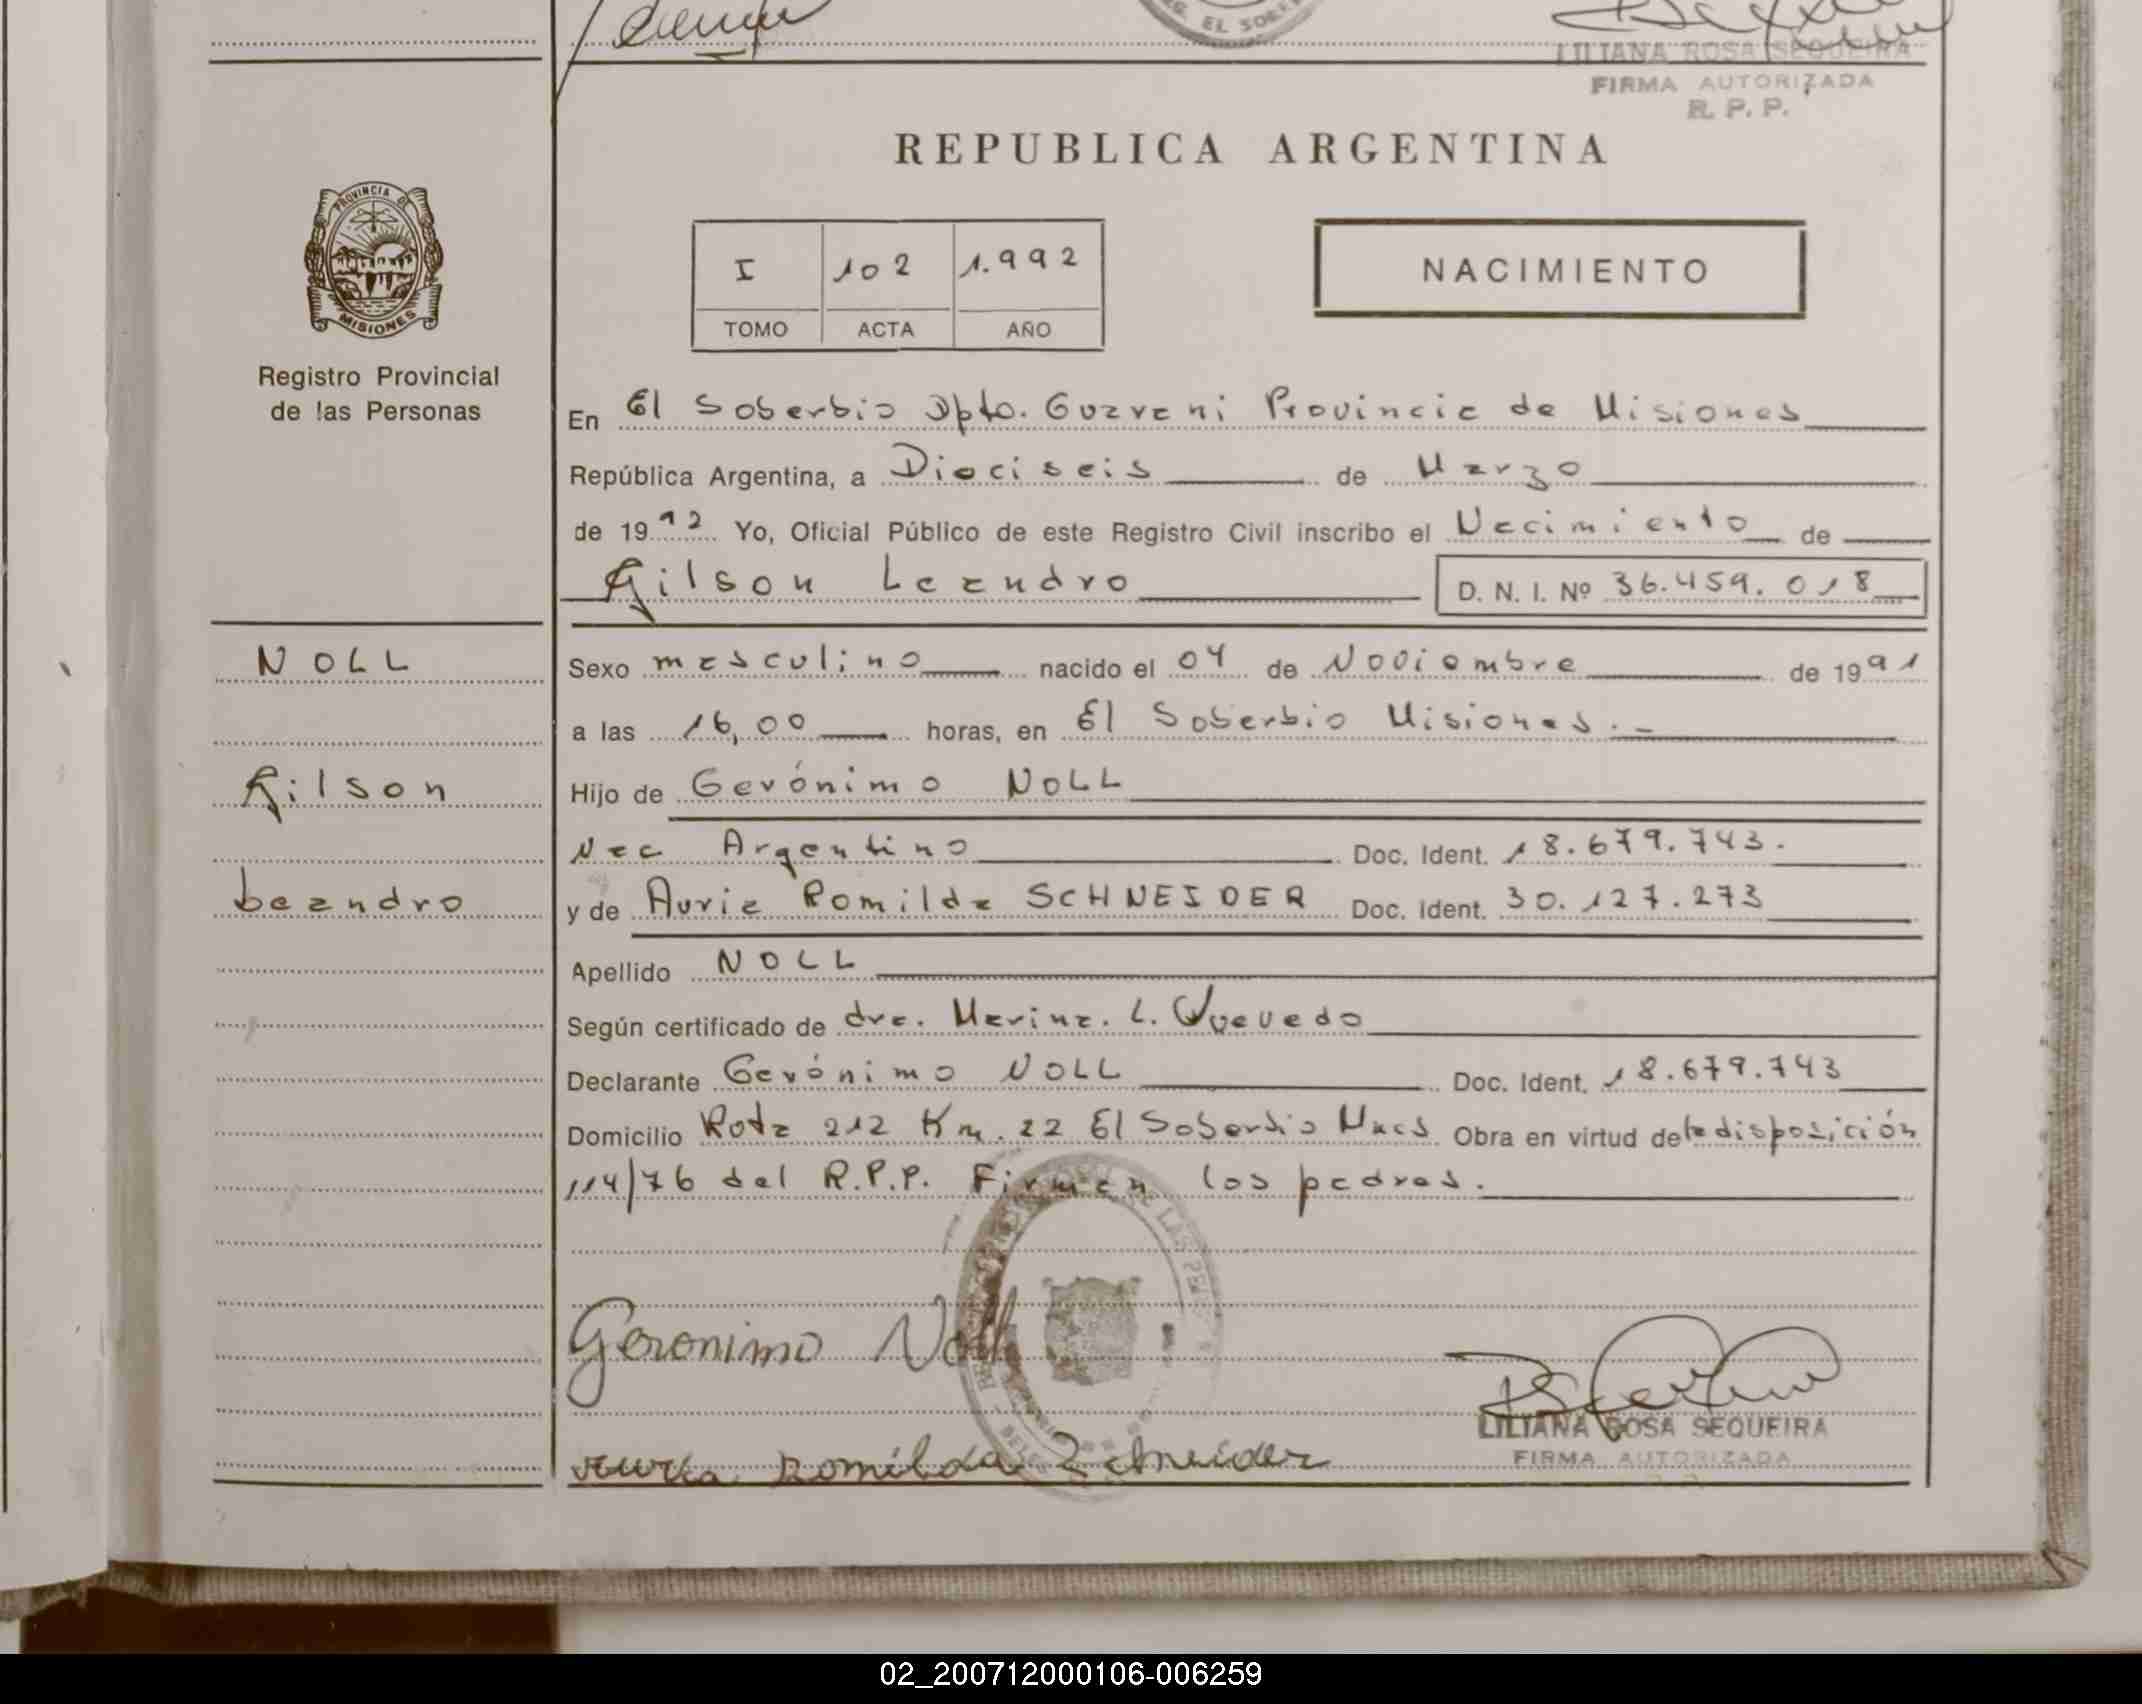 EL SOBER
LILIANA ROSA SEQUEIRA
FIRMA AUTORIZADA
R. P. P.
REPUBLICA ARGENTINA
PROVINCIA DE
MISIONES
I 102 1.992
TOMO ACTA AÑO
NACIMIENTO
Registro Provincial
de las Personas
En El Soberbio Dpto. Guarani Provincia de Misiones
República Argentina, a Dieciseis de Marzo
de 1992 Yo, Oficial Público de este Registro Civil inscribo el Nacimiento de
Gilson Leandro D. N. I. Nº 36.459.018
NOLL
Sexo masculino nacido el 04 de Noviembre de 1991
a las 16,00 horas, en El Soberbio Misiones.-
Gilson
Hijo de Gerónimo NOLL
Nac Argentino Doc. Ident. 18.679.743.
Leandro
y de Auria Romilda SCHNEIDER Doc. Ident. 30.127.273
Apellido NOLL
Según certificado de dra. Marina. L. Quevedo
Declarante Gerónimo NOLL Doc. Ident. 18.679.743
Domicilio Ruta 212 Km. 22 El Soberbio Mnes Obra en virtud de la disposición
114/76 del R.P.P. Firman los padres.
Geronimo Noll
LILIANA ROSA SEQUEIRA
FIRMA AUTORIZADA
Auria Romilda Schneider
02_200712000106-006259